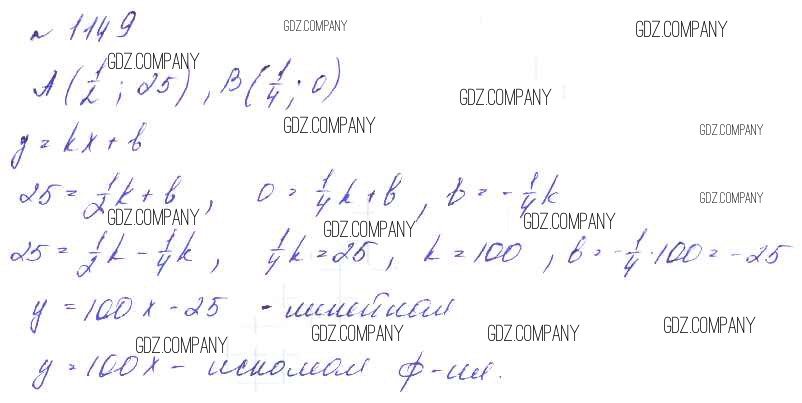 № 1149 GDZ.COMPANY GDZ.COMPANY
GDZ.COMPANY
A(1/2; 25), B(1/4; 0) GDZ.COMPANY
GDZ.COMPANY GDZ.COMPANY
y = kx + b
25 = 1/2k + b, 0 = 1/4k + b, b = -1/4k GDZ.COMPANY
GDZ.COMPANY GDZ.COMPANY GDZ.COMPANY
25 = 1/2k - 1/4k, 1/4k = 25, k = 100, b = -1/4·100 = -25
y = 100x - 25 - линейная
GDZ.COMPANY GDZ.COMPANY GDZ.COMPANY GDZ.COMPANY
y = 100x - искомая ф-ия.